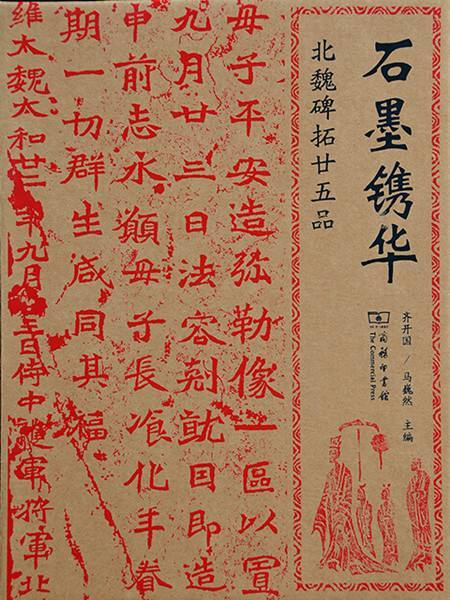 石墨镌华
北魏碑拓廿五品
齐开国 / 马巍然 主编
商務印書館
The Commercial Press
母子平安造弥勒像一區以置
九月廿三日法容剋就因即造
申前志永願母子長飡化年眷
期一切群生咸同其福
維太魏太和廿二年九月廿三日侍中護軍將軍北